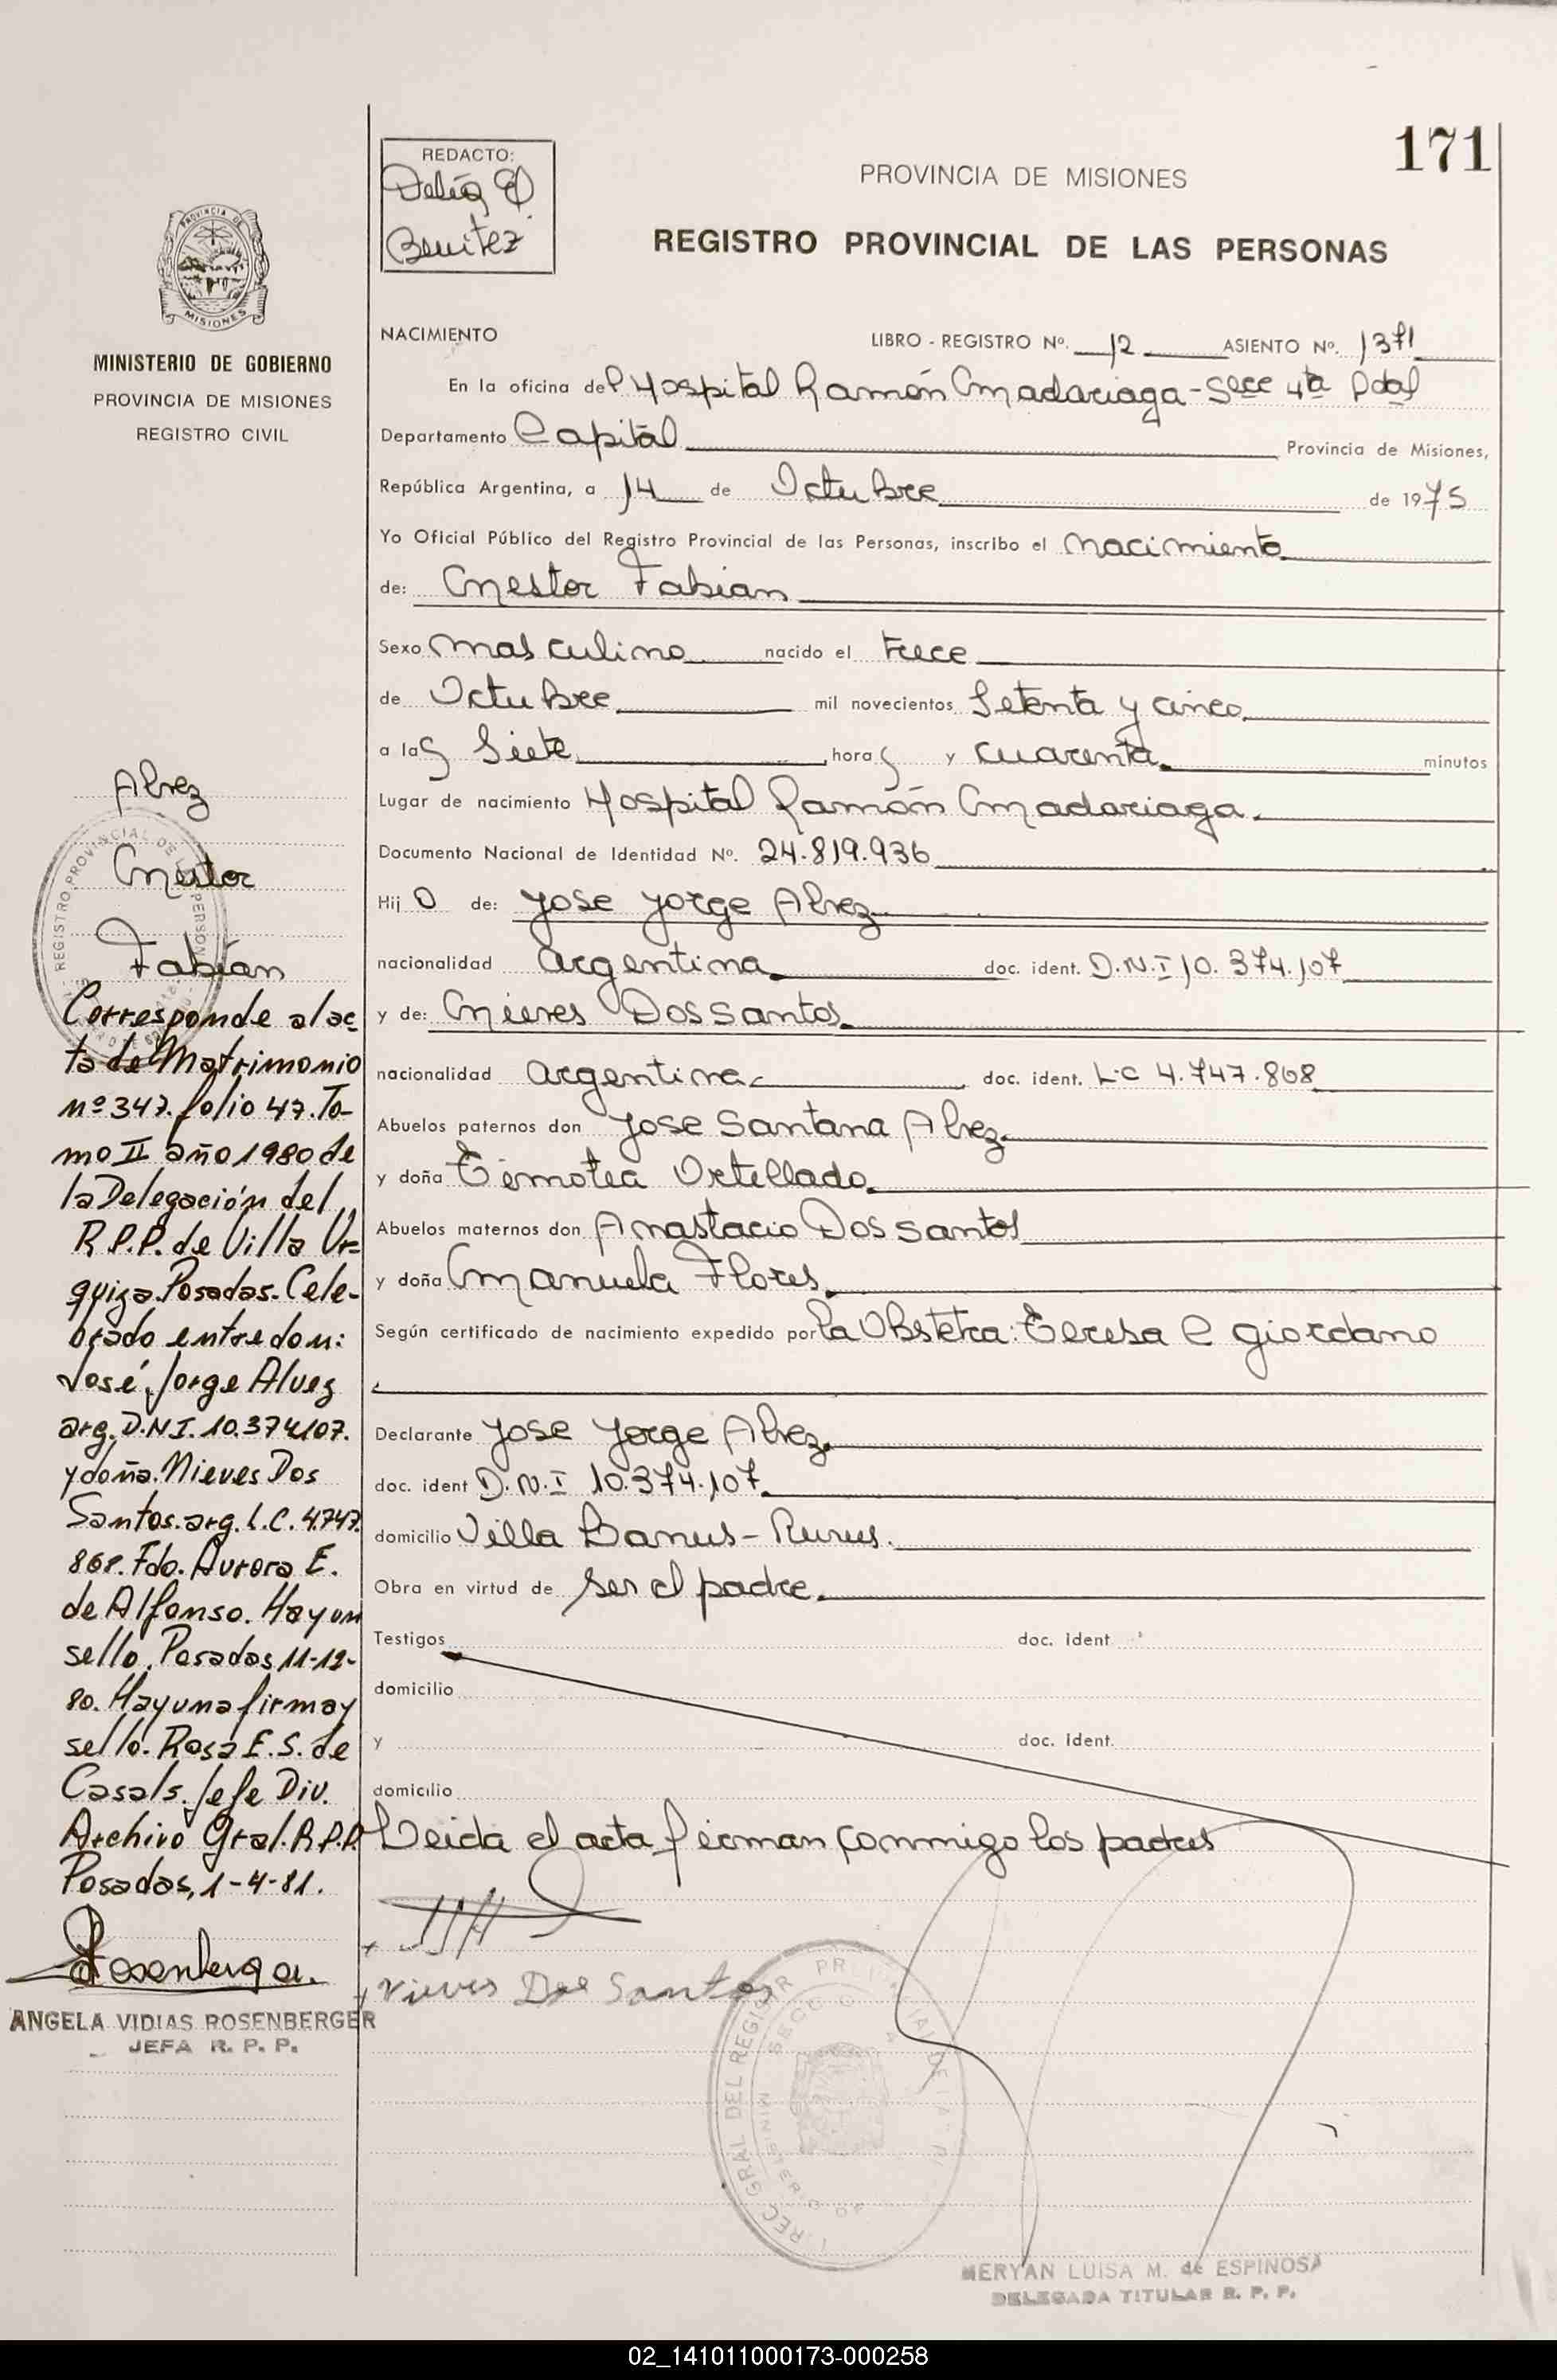 171
REDACTO:
Delia E
Benitez
PROVINCIA DE MISIONES
REGISTRO PROVINCIAL DE LAS PERSONAS
PROVINCIA DE
MISIONES
MINISTERIO DE GOBIERNO
PROVINCIA DE MISIONES
REGISTRO CIVIL
NACIMIENTO LIBRO - REGISTRO Nº. 12 ASIENTO Nº. 1371
En la oficina del Hospital Ramón Madariaga - Secc 4ta Pdas
Departamento Capital Provincia de Misiones,
República Argentina, a 14 de Octubre de 1975
Yo Oficial Público del Registro Provincial de las Personas, inscribo el Nacimiento
de: Nestor Fabian
Sexo Masculino nacido el trece
de Octubre mil novecientos Setenta y cinco
a las Siete horas y cuarenta minutos
Lugar de nacimiento Hospital Ramón Madariaga.
Documento Nacional de Identidad Nº. 24.819.936
Hijo de: Jose Jorge Alvez
nacionalidad argentina doc. ident. D.N.I 10.374.107
y de: Nieves Dos santos
nacionalidad argentina doc. ident. L.C 4.747.868
Abuelos paternos don Jose Santana Alvez
y doña Timotea Ortellado
Abuelos maternos don Anastacio Dos santos
y doña Manuela Flores
Según certificado de nacimiento expedido por la Obstetra: Teresa E Giordano
Declarante Jose Jorge Alvez
doc. ident D.N.I 10.374.107
domicilio Villa Bonus - Runus.
Obra en virtud de ser el padre.
Testigos doc. ident
domicilio
y doc. ident.
domicilio
Leida el acta firman conmigo los padres
Nieves Dos Santos
MERYAN LUISA M. de ESPINOSA
DELEGADA TITULAR R. P. P.
Alvez
Nestor
Fabián
Corresponde al ac
ta de Matrimonio
nº 347. folio 47. To-
mo II año 1980 de
la Delegación del
R.P.P. de Villa Ur-
quiza. Posadas. Cele-
brado entre don:
José Jorge Alvez
arg. D.N.I. 10.374107.
y doña. Nieves Dos
Santos. arg. L.C. 4.747.
868. Fdo. Aurora E.
de Alfonso. Hay un
sello. Posadas 11-12-
80. Hay una firma y
sello. Rosa E.S. de
Casals. Jefe Div.
Archivo Gral. R.P.P.
Posadas, 1-4-81.
Rosenberger
ANGELA VIDIAS ROSENBERGER
JEFA R. P. P.
02_141011000173-000258